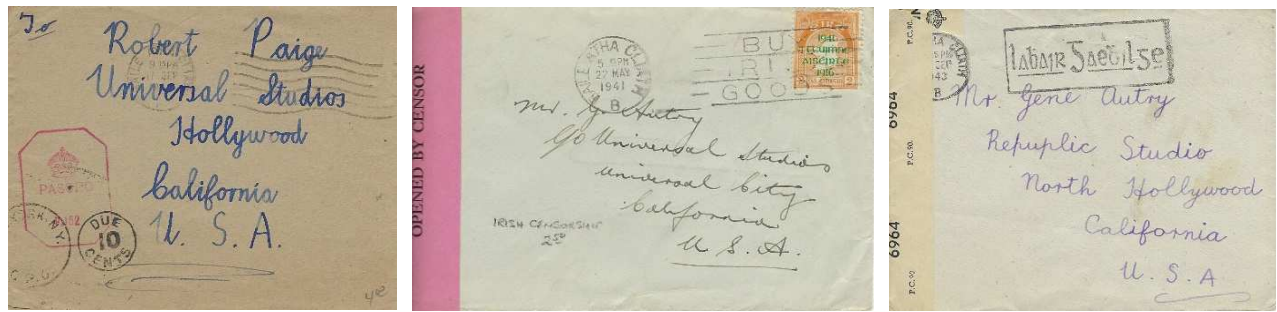 To
Robert Paige
Universal Studios
Hollywood
California
U. S. A.
PASSED
DUE
10
CENTS
N.Y.
OPENED BY CENSOR
BAILE ÁTHA CLIATH
5 PM
27 MAY
1941
B
BUY
IRISH
GOODS
1941
AISÉIRGE
1916
Mr. G. Autry
c/o Universal Studios
Universal City
California
U. S. A.
IRISH CENSORSHIP
2.50
P.C. 90.
6964
P.C. 90.
6964
P.C. 90
CLIATH
SEP
1943
B
labair Gaeḋilge
Mr. Gene Autry
Repuplic Studio
North Hollywood
California
U. S. A